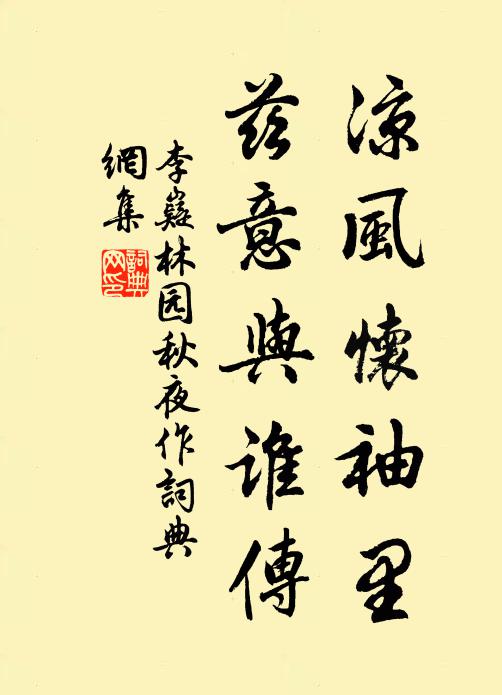 涼風懷袖里
茲意與誰傳
李嶷林园秋夜作詞典
網集
詞典
网印